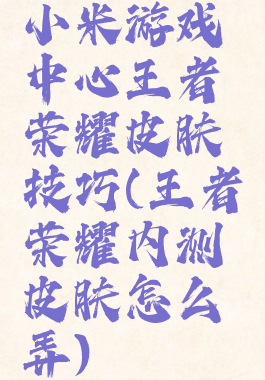 小米游戏
中心王者
荣耀皮肤
技巧(王者
荣耀内测
皮肤怎么
弄)